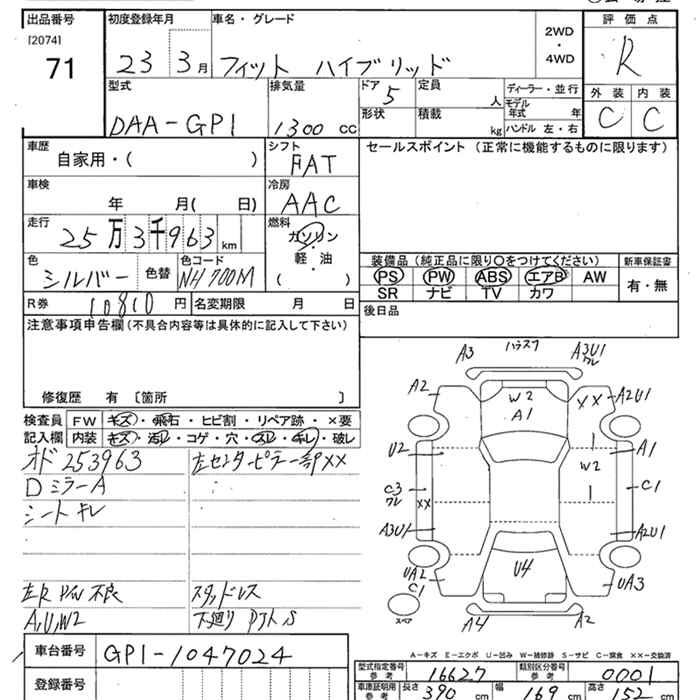 出品番号 初度登録年月 車名・グレード 評価点
[2074]
71 23 3月 フィット ハイブリッド 2WD ・ 4WD R
型式 排気量 ドア 定員 ディーラー・並行 外装 内装
DAA-GP1 1300 cc 5 人 モデル年式 年 C C
形状 積載 kg ハンドル 左・右
車歴 シフト セールスポイント (正常に機能するものに限ります)
自家用・( ) FAT
車検 冷房
年 月( 日) AAC
走行 燃料
25万3千963 km ガソリン・軽油
色 色コード ( )
シルバー 色替 NH700M
装備品 (純正品に限り○をつけてください) 新車保証書
PS PW ABS エアB AW 有・無
SR ナビ TV カワ
R券 10810 円 名変期限 月 日 後日品
注意事項申告欄 (不具合内容等は具体的に記入して下さい)
修復歴 有 〔箇所 〕
検査員 FW キズ・飛石・ヒビ割・リペア跡・×要
記入欄 内装 キズ・汚レ・コゲ・穴・スレ・キレ・破レ
オド 253963 左センターピラー部××
Dミラー A
シート キレ
左R P/W 不良 スタッドレス
A,U,W2 下廻り
A3 A3U1
ワレ
A2 W2 A1 ×× A2U1
U2 A1
W2
C3 ワレ ×× C1
A3U1 A2U1
UA2 C1 U4 UA3
スペア A4 A2
A-キズ E-エクボ U-凹み W-補修跡 S-サビ C-腐食 ××-交換済
車台番号 GP1-1047024
型式指定番号 参考 16627 類別区分番号 参考 0001
登録番号 車庫証明用 参考 長さ 390 cm 幅 169 cm 高さ 152 cm